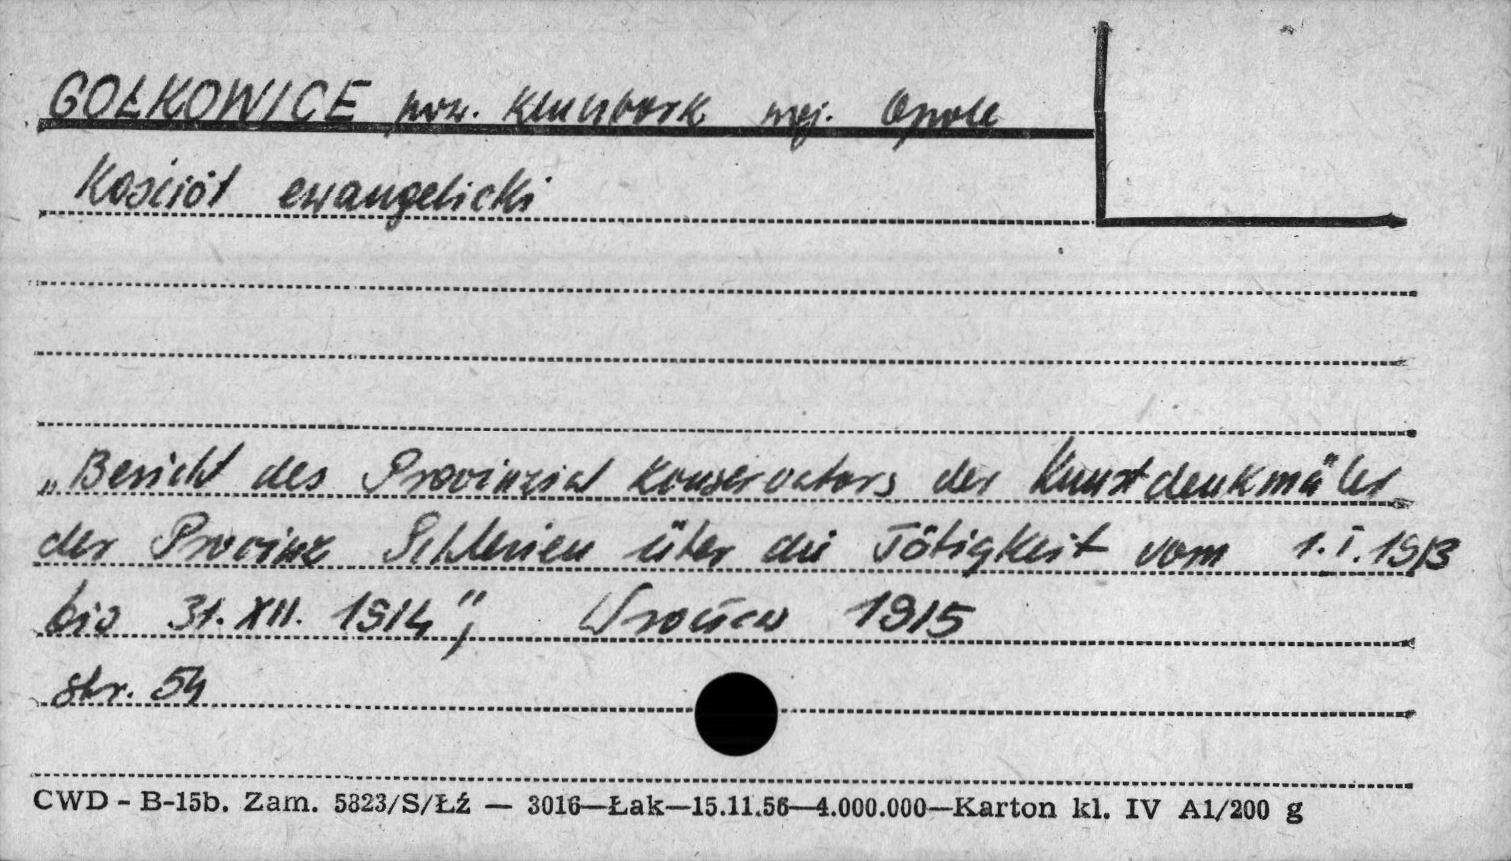 GOŁKOWICE pow. Kluczbork woj. Opole
Kościół ewangelicki
„Bericht des Provinzial Konservators der Kunstdenkmäler
der Provinz Schlesien über die Tätigkeit vom 1.I.1913
bis 31.XII.1914", Wrocław 1915
str. 54
CWD - B-15b. Zam. 5823/S/Łź — 3016—Łak—15.11.56—4.000.000—Karton kl. IV A1/200 g